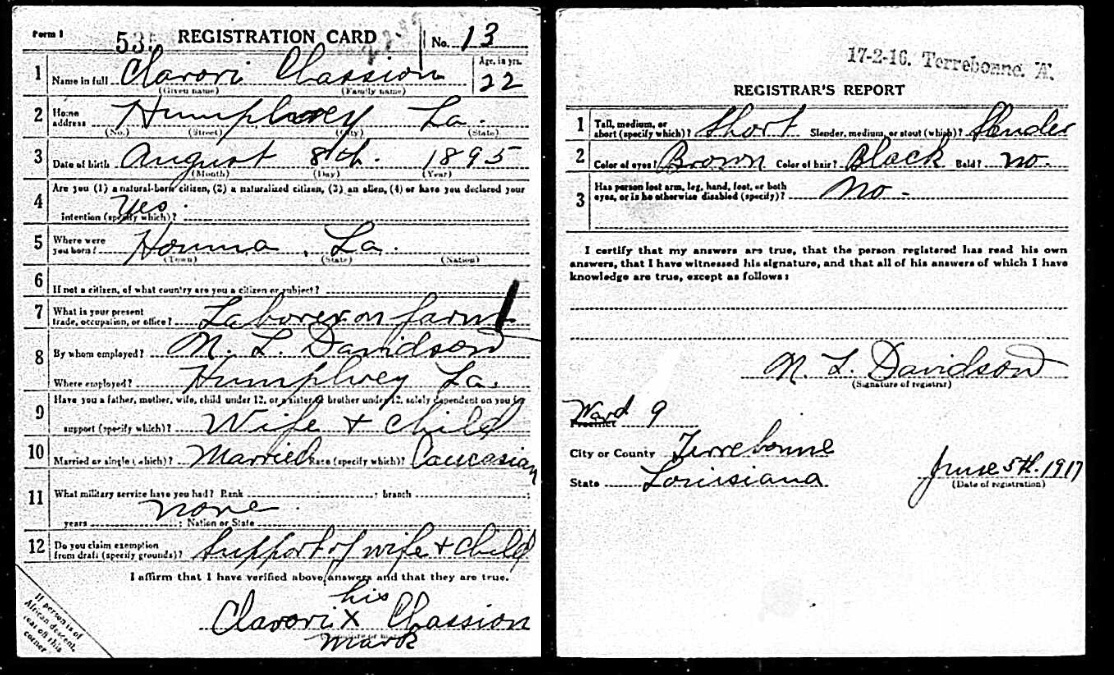 Form 1
535 REGISTRATION CARD No. 13
1 Name in full Clavori Chassion Age, in yrs. 22
(Given name) (Family name)
2 Home address Humphrey La.
(No.) (Street) (City) (State)
3 Date of birth August 8th. 1895
(Month) (Day) (Year)
4 Are you (1) a natural-born citizen, (2) a naturalized citizen, (3) an alien, (4) or have you declared your
intention (specify which)? Yes.
5 Where were you born? Houma, La.
(Town) (State) (Nation)
6 If not a citizen, of what country are you a citizen or subject?
7 What is your present trade, occupation, or office? Laborer on farm 1
8 By whom employed? N. L. Davidson
Where employed? Humphrey La.
9 Have you a father, mother, wife, child under 12, or a sister or brother under 12, solely dependent on you for
support (specify which)? Wife + child
10 Married or single (which)? Married Race (specify which)? Caucasian
11 What military service have you had? Rank ; branch ;
years none ; Nation or State
12 Do you claim exemption from draft (specify grounds)? Support of wife + child
I affirm that I have verified above answers and that they are true.
his
Clavori X Chassion
mark
If person is of African descent, tear off this corner
17-2-16. Terrebonne. A.
REGISTRAR'S REPORT
1 Tall, medium, or short (specify which)? Short Slender, medium, or stout (which)? Slender
2 Color of eyes? Brown Color of hair? Black Bald? no
3 Has person lost arm, leg, hand, foot, or both eyes, or is he otherwise disabled (specify)? No -
I certify that my answers are true, that the person registered has read his own
answers, that I have witnessed his signature, and that all of his answers of which I have
knowledge are true, except as follows:
N. L. Davidson
(Signature of registrar)
Ward 9
Precinct
City or County Terrebonne
State Louisiana June 5th. 1917
(Date of registration)